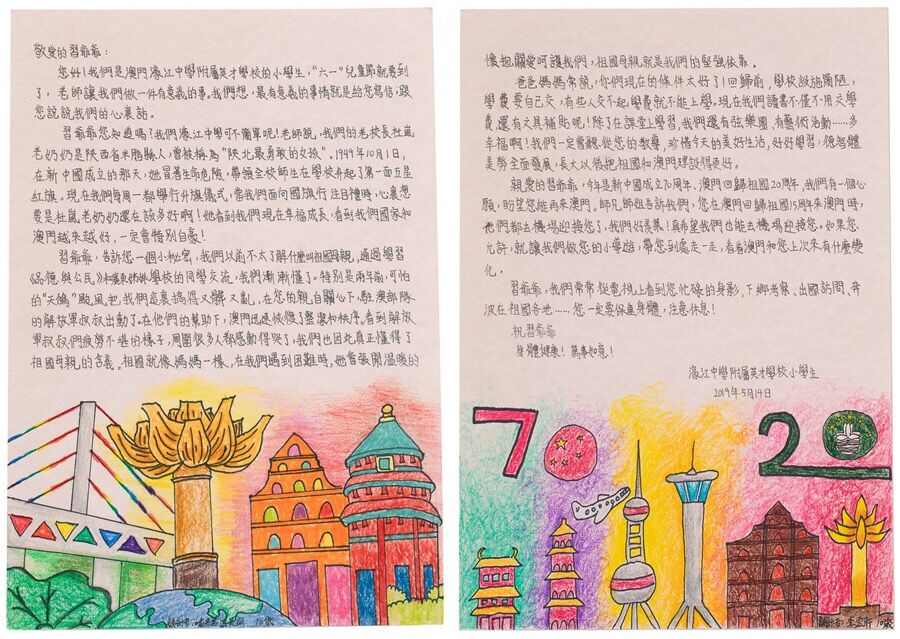 敬愛的習爺爺：
您好！我們是澳門濠江中學附屬英才學校的小學生，“六一”兒童節就要到
了，老師讓我們做一件有意義的事。我們想，最有意義的事情就是給您寫信，跟
您說說我們的心裏話。
習爺爺您知道嗎？我們濠江中學可不簡單呢！老師說，我們的老校長杜嵐
老奶奶是陝西省米脂縣人，曾被稱為“陝北最勇敢的女孩”。1949年10月1日，
在新中國成立的那天，她冒著生命危險，帶領全校師生在學校升起了第一面五星
紅旗。現在我們每周一都舉行升旗儀式，當我們面向國旗行注目禮時，心裏想
要是杜嵐老奶奶還在該多好啊！她看到我們現在幸福成長，看到我們國家和
澳門越來越好，一定會特別自豪！
習爺爺，告訴您一個小秘密，我們以前不太了解什麼叫祖國母親，通過學習
《品德與公民》和學校的同學交流，我們漸漸懂了。特別是兩年前，可怕
的“天鴿”颱風把我們這裏搞得又髒又亂，在您的親自關心下，駐澳部隊
的解放軍叔叔出動了。在他們的幫助下，澳門迅速恢復了整潔和秩序。看到解放
軍叔叔們疲勞不堪的樣子，周圍很多人都感動得哭了，我們也因此真正懂得了
祖國母親的含義。祖國就像媽媽一樣，在我們遇到困難時，她會張開溫暖的
懷抱關愛呵護我們，祖國母親就是我們的堅強依靠。
爸爸媽媽常說，你們現在的條件太好了！回歸前，學校設施簡陋，
學費要自己交，有些人交不起學費就不能上學。現在我們讀書不僅不用交學
費還有文具補貼呢！除了在課堂上學習，我們還有弦樂團，有藝術活動……多
幸福啊！我們一定會聽從您的教導，珍惜今天的美好生活，好好學習，德智體
美勞全面發展，長大以後把祖國和澳門建設得更好。
親愛的習爺爺，今年是新中國成立70周年、澳門回歸祖國20周年，我們有一個心
願，盼望您能再來澳門。師兄師姐告訴我們，您在澳門回歸祖國15周年來澳門時，
他們都去機場迎接您了，我們好羨慕！真希望我們也能去機場迎接您。如果您
允許，就讓我們做您的小導遊，帶您到處走一走，看看澳門和您上次來有什麼變
化。
習爺爺，我們常常從電視上看到您忙碌的身影，下鄉考察、出國訪問、奔
波在祖國各地……您一定要保重身體，注意休息！
祝習爺爺
身體健康！萬事如意！
濠江中學附屬英才學校小學生
2019年5月14日
70
20